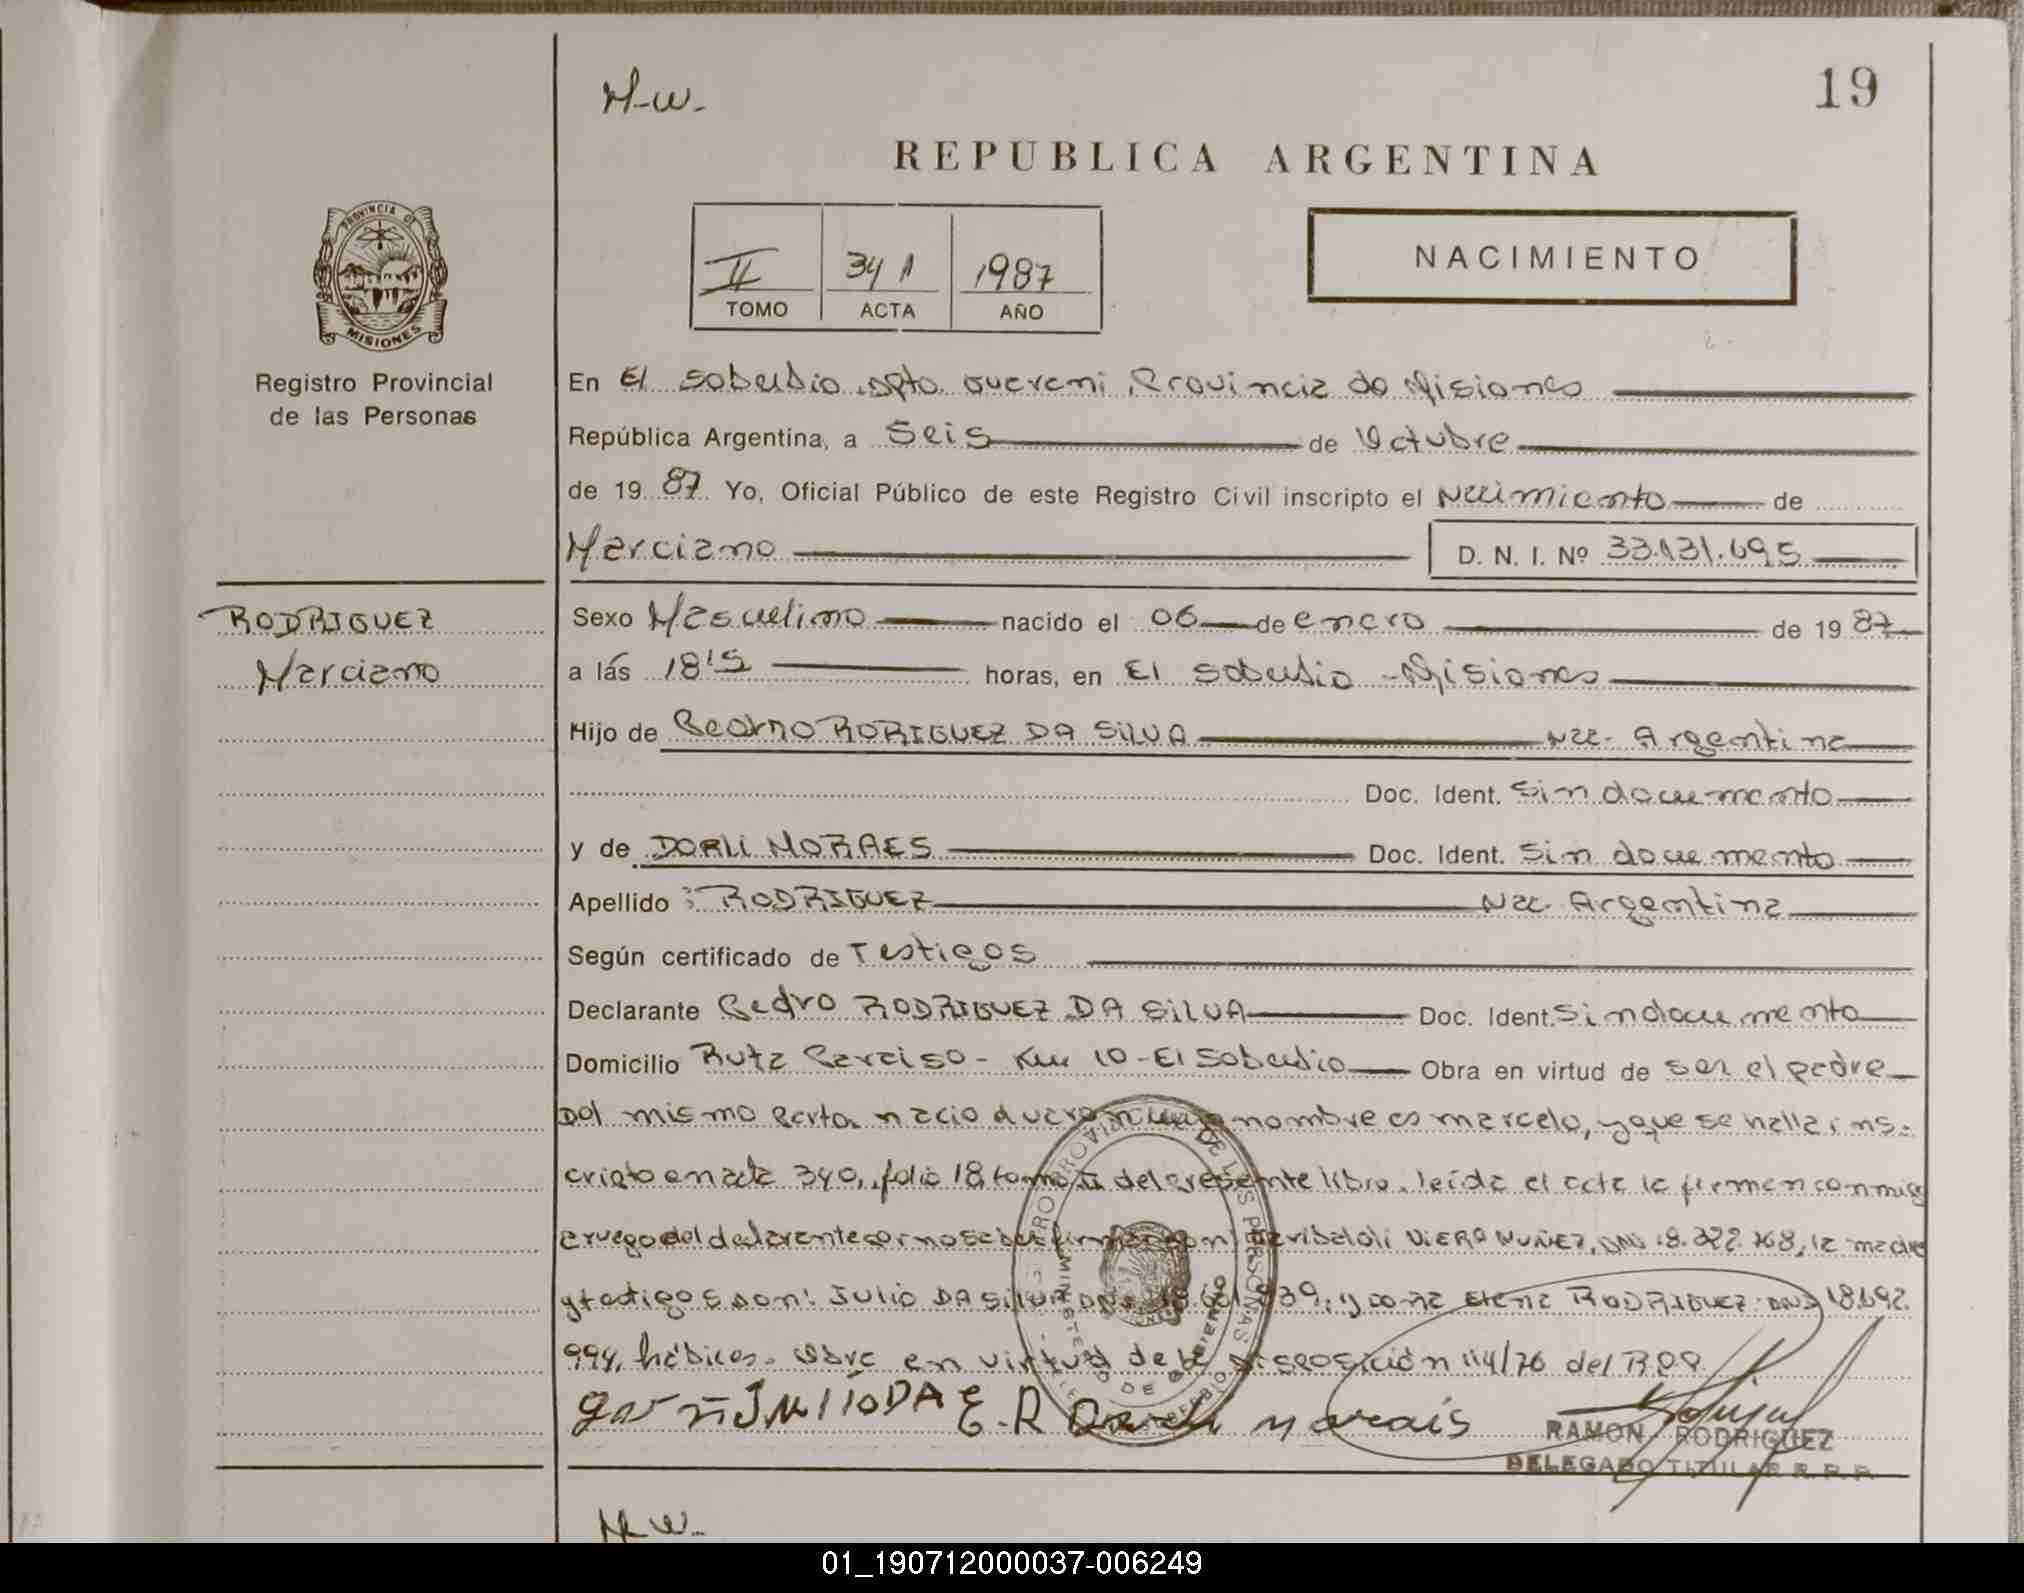 M-W-
19
REPUBLICA ARGENTINA
II 341 1987
TOMO ACTA AÑO
NACIMIENTO
PROVINCIA DE
MISIONES
Registro Provincial
de las Personas
En El Soberbio Dpto. Guarani, Provincia de Misiones
República Argentina, a Seis de Octubre
de 1987 Yo, Oficial Público de este Registro Civil inscripto el Nacimiento de
Marciano D. N. I. Nº 33.131.695
RODRIGUEZ
Marciano
Sexo Masculino nacido el 06 de enero de 1987
a lás 18'15 horas, en El Soberbio - Misiones
Hijo de Pedro RODRIGUEZ DA SILVA Nac. Argentina
Doc. Ident. Sin documento
y de DORLI MORAES Doc. Ident. Sin documento
Apellido: RODRIGUEZ Nac. Argentina
Según certificado de Testigos
Declarante Pedro RODRIGUEZ DA SILVA Doc. Ident. Sin documento
Domicilio Ruta Paraiso - Km 10 - El Soberbio Obra en virtud de ser el padre
Del mismo parto nacio nombre es marcelo, y que se halla ins-
cripto en acta 340, folio 18, tomo II del presente libro. leída el acta la firman conmigo
a ruego del declarante por no saber firmar VIERO NUÑEZ, DNI 18.322.768, la madre
y testigos son: Julio DA SILVA 939, y RODRIGUEZ DNI 18.692.
994, hábiles. Obra en virtud de la Disposición 114/76 del R.P.P.
JULIO DA E.R Dorli morais
RAMON RODRIGUEZ
DELEGADO TITULAR R.P.P.
M W-
01_190712000037-006249